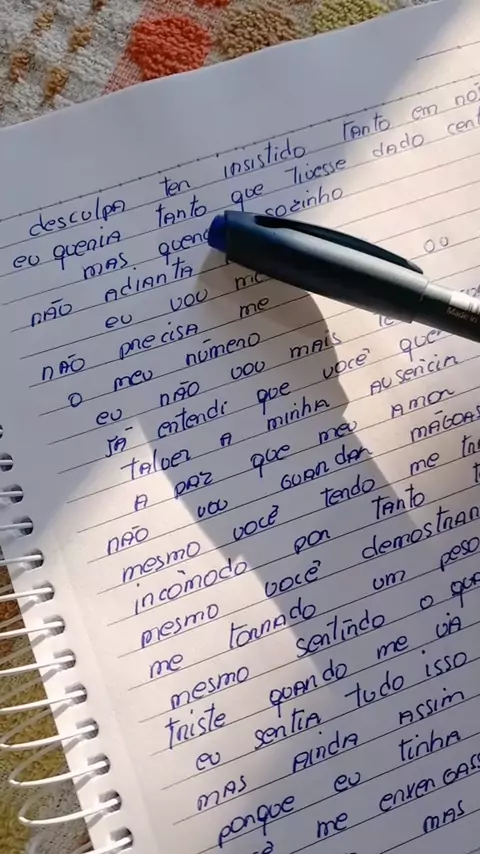 desculpa ter insistido tanto em
eu queria tanto que tivesse dado
mas sozinho
não adianta
eu vou
não precisa me
o meu número
eu não vou mais
já entendi que você
talvez a minha ausência
a paz que meu amor
não vou guardar mágoas
mesmo você tendo me
incômodo por tanto
mesmo você
me tornado um peso
mesmo sentindo o
triste quando me via
eu sentia tudo isso
mas ainda assim
porque eu tinha
me
mas
Made in